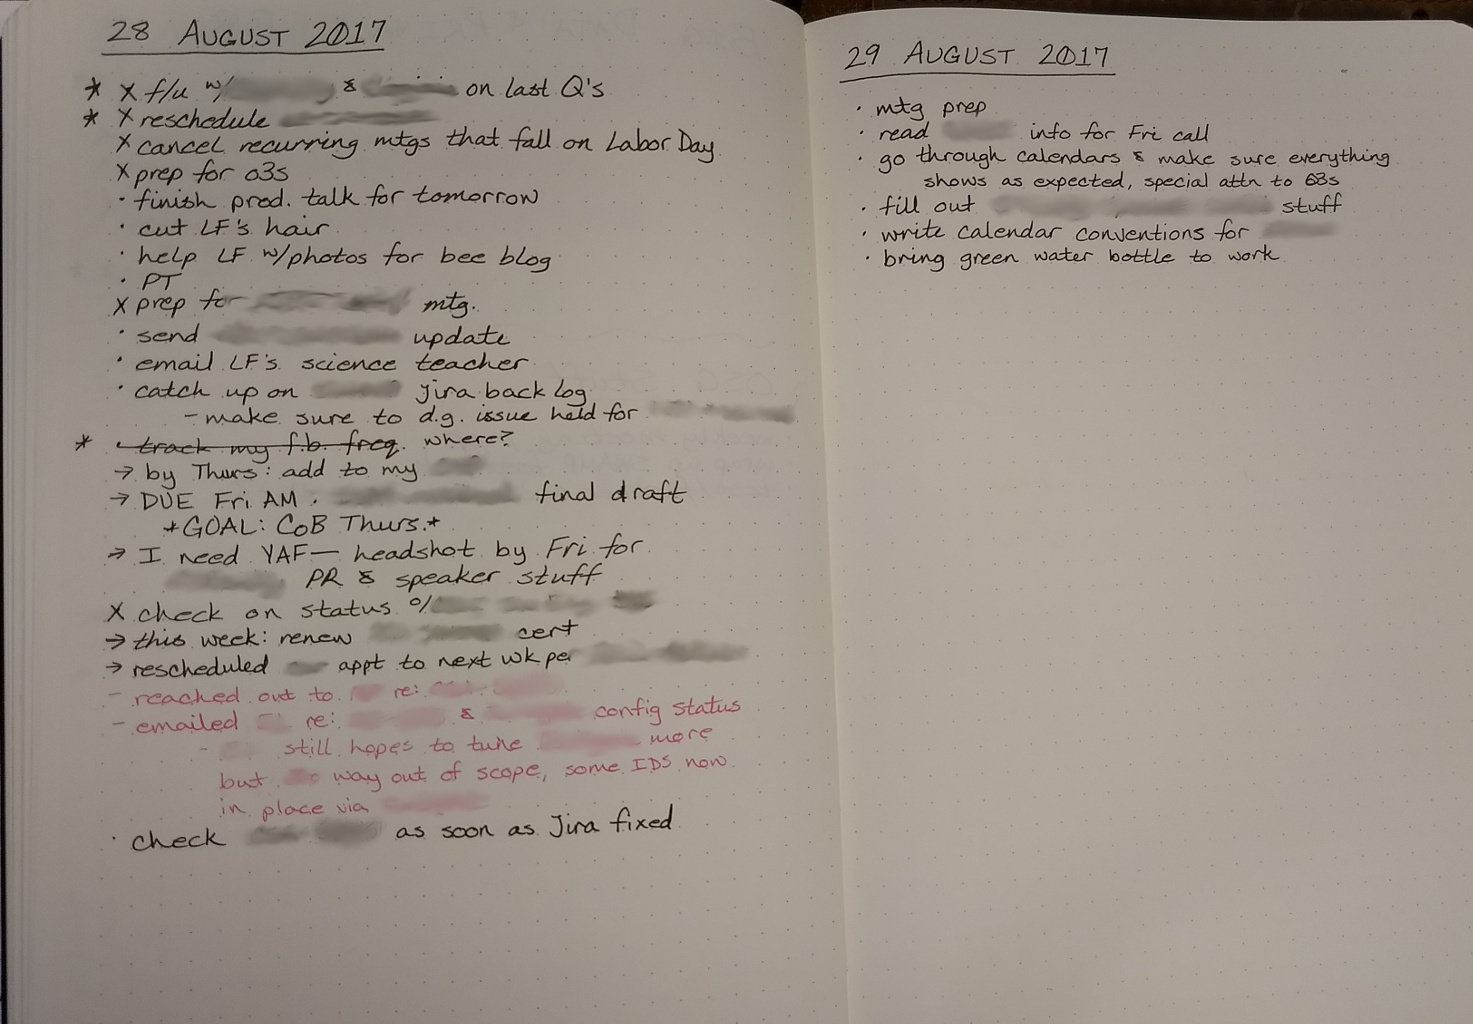 28 AUGUST 2017
* x f/u w/ & on last Q's
* x reschedule
x cancel recurring mtgs that fall on Labor Day
x prep for o3s
· finish prod. talk for tomorrow
· cut LF's hair
· help LF w/photos for bee blog
· PT
x prep for mtg.
· send update
· email LF's science teacher
· catch up on Jira backlog
- make sure to d.g. issue held for
* · track my f.b. freq. where?
→ by Thurs: add to my
→ DUE Fri AM. final draft
*GOAL: CoB Thurs.*
→ I need YAF— headshot by Fri for
PR & speaker stuff
X check on status o/
→ this week: renew cert
→ rescheduled appt to next wk per
- reached out to re:
- emailed re: & config status
- still hopes to tune more
but way out of scope, some IDS now
in place via
· check as soon as Jira fixed
29 AUGUST 2017
· mtg prep
· read info for Fri call
· go through calendars & make sure everything
shows as expected, special attn to o3s
· fill out stuff
· write calendar conventions for
· bring green water bottle to work